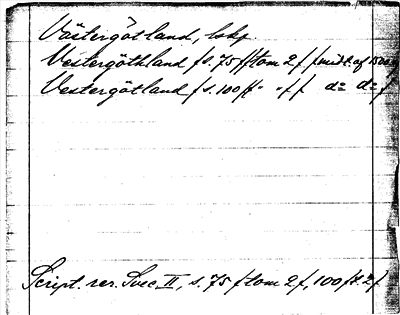 Västergötland, lskp.
Vestergöthland (s. 75 (f. tom 2 f. (midt. af 1500
Vestergötland (s. 100 (f. " " f. ( d= d= f
Script. rer. Svec. II, s. 75 f. tom 2 f, 100 f. 2 f